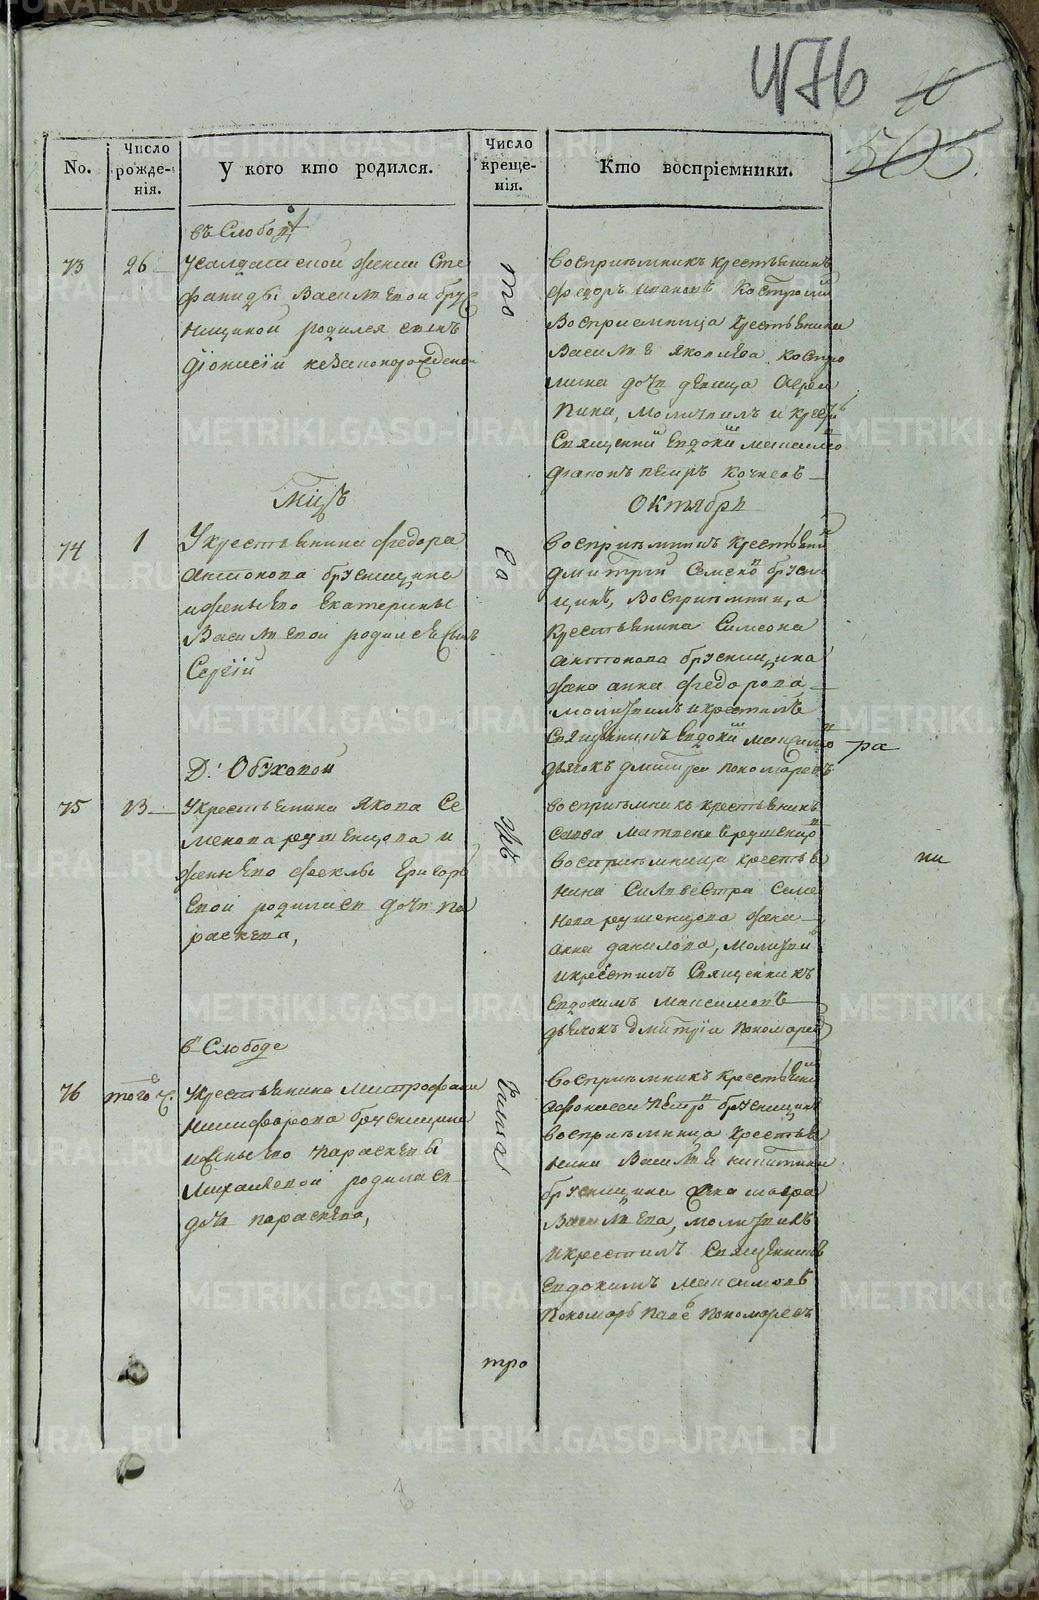 476
40
505
No.
Число рожде-нія.
У кого кто родился.
Число креще-нія.
Кто воспріемники.
въ Слободѣ
73
26
Усалдатской жении Сте
фаниды Василіевой брус
ницыной родился сынъ
Діонисій незаконорожден
то
Воспріемникъ крестьянинъ
Федоръ Ивановъ Костромин
Восприемница крестьянина
Василія Яковлева Костро
мина дочь девица Агрепина, молитвилъ и крести
Священникъ Евдоким Максимо
Діаконъ Петръ Кочневъ
Мцъ
Октябрь
74
1
Укрестьянина Федора
Антонова брусницина
и жены его Екатерины
Василіевой родился сынъ
Сергій
Его
Воспріемникъ крестьянин
Дмитрій Семено брусни
цинъ, Воспріемница
крестьянина Симеона
Антонова брусницина
жена Анна Федорова
молитвилъ и крестилъ
Священникъ Евдоким Максимо
Дьячокъ Дмитрей Пономаревъ
ра
Д: Обуховой
75
13
Укрестьянина Якова Се
менова и
жены его Феклы Григорь
евой родилась дочь Па
раскева,
Воспріемникъ крестьянинъ
Савва Матвеевъ
Воспріемница крестья
нина Силвестра Семе
нова жена
Анна Данилова, молитви
и крестилъ Священникъ
Евдокимъ Максимовъ
Дьячокъ Дмитрій Пономарев
ни
в Слободе
76
того ч.
Укрестьянина Митрофана
Никифорова брусницина
и жены его Параскевы
Михайловой родилася
дочь Параскева,
Воспріемникъ крестьянин
Афонасей Петро брусницинъ
воспріемница крестья
нина Василія Никитина
брусницина жена Мавра
Василіева, молитвилъ
и крестилъ Священникъ
Евдокимъ Максимовъ
Пономарь Паве Пономаревъ
тро